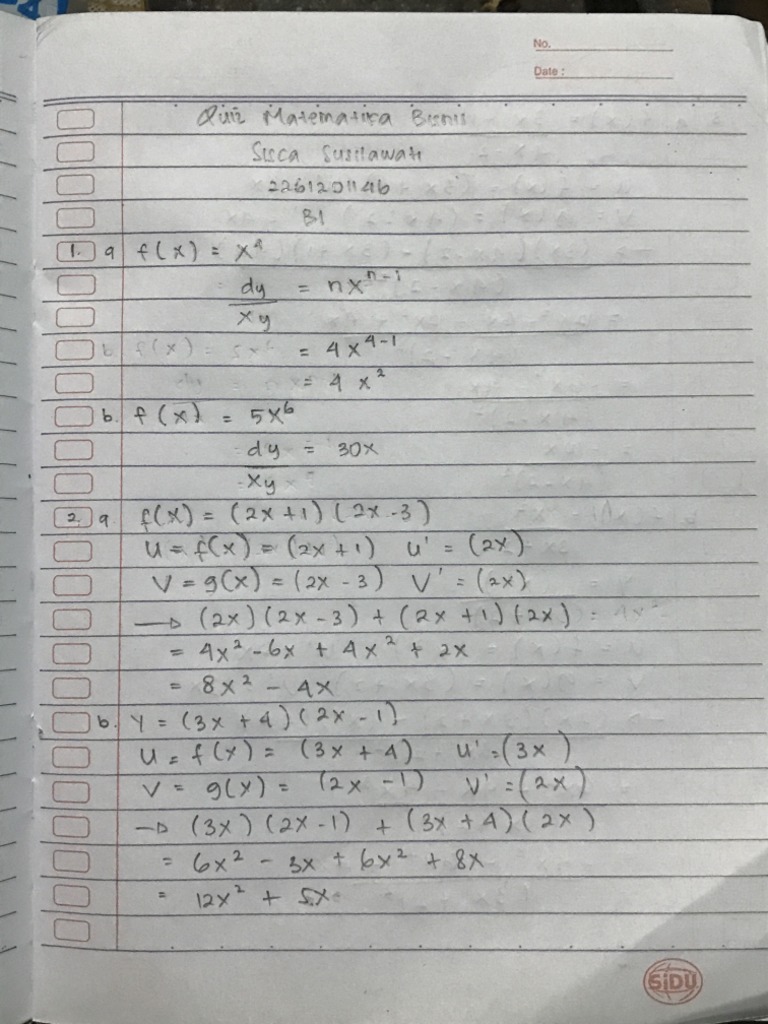 No.
Date :
Quiz Matematika Bisnis
Sisca Susilawati
2261201146
B1
1. a f(x) = x⁴
dy/xy = nx^(n-1)
b f(x) = 5x⁶ = 4x^(4-1)
= 4 x²
b. f(x) = 5x⁶
dy/xy = 30x
2. a f(x) = (2x+1)(2x-3)
u = f(x) = (2x+1) u' = (2x)
V = g(x) = (2x-3) V' = (2x)
→ (2x)(2x-3) + (2x+1)(2x)
= 4x² - 6x + 4x² + 2x
= 8x² - 4x
b. Y = (3x+4)(2x-1)
u = f(x) = (3x+4) u' = (3x)
V = g(x) = (2x-1) V' = (2x)
→ (3x)(2x-1) + (3x+4)(2x)
= 6x² - 3x + 6x² + 8x
= 12x² + 5x
SiDU